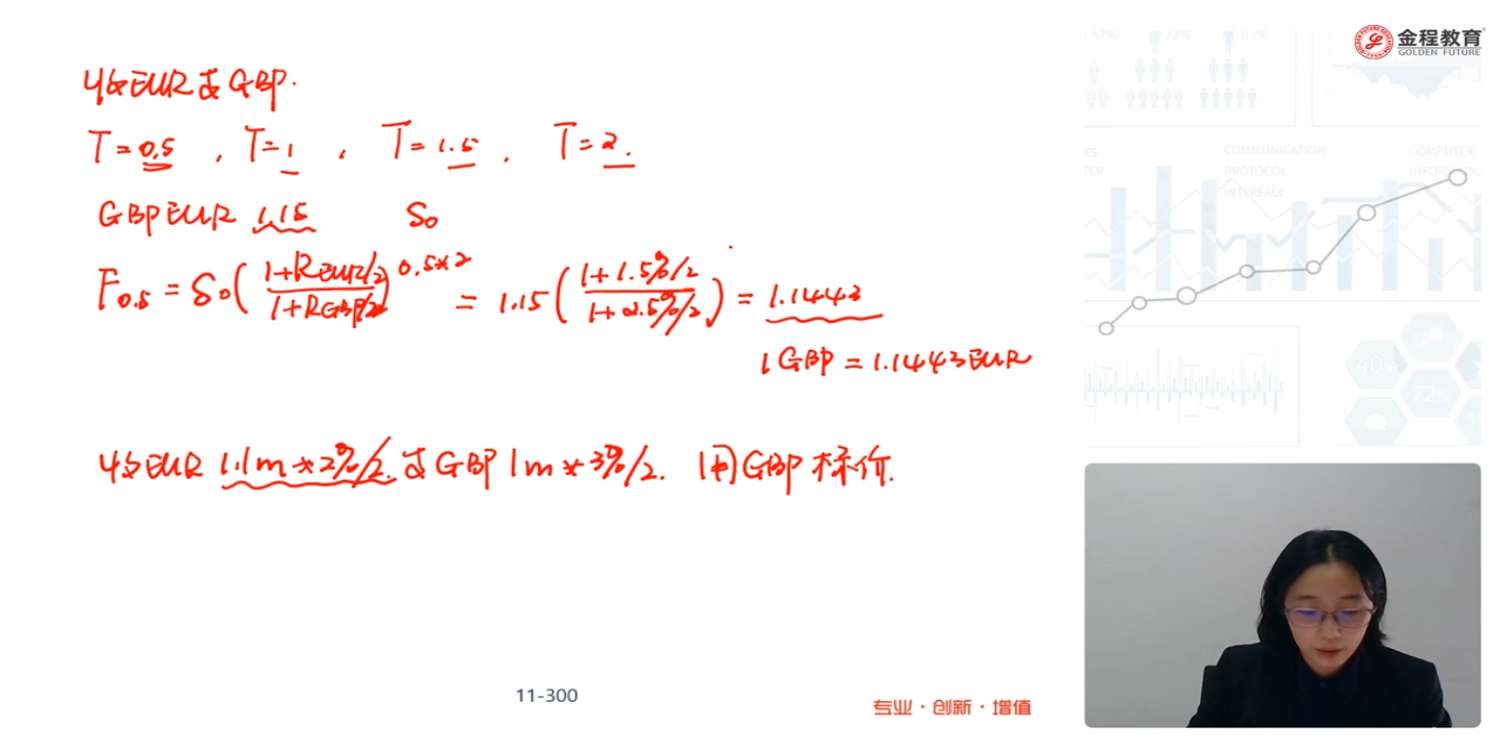 金程教育
GOLDEN FUTURE
收EUR支GBP.
T=0.5 , T=1 , T=1.5 , T=2.
GBPEUR 1.15 S₀
F₀.₅ = S₀(1+R_EUR/2 / 1+R_GBP/2)^0.5*2 = 1.15(1+1.5%/2 / 1+2.5%/2) = 1.1443
1GBP = 1.1443EUR
收EUR 1.1m*2%/2. 支GBP 1m*3%/2. 用GBP标价.
COMMUNICATION
PROTOCOL
INTERFACE
COMPUTER
40%
72%
11-300
专业·创新·增值